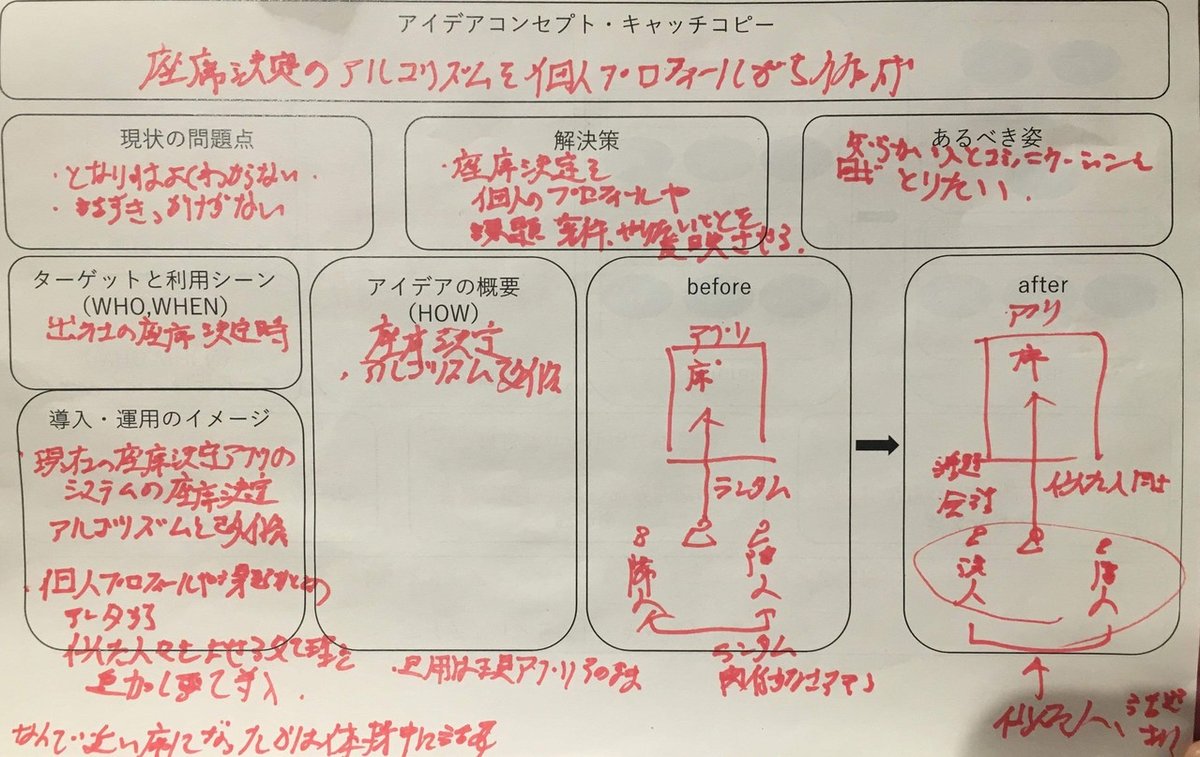 アイデアコンセプト・キャッチコピー
座席決定のアルゴリズムを個人プロフィールが
現状の問題点
・となりはよくわからない
・はなすきっかけがない
解決策
・座席決定を
個人のプロフィールや
課題 案件、やりたいことを
反映させる.
あるべき姿
人とコミュニケーションを
とりたい.
ターゲットと利用シーン
(WHO,WHEN)
出社の座席決定時
導入・運用のイメージ
・現在の座席決定アプリの
システムの座席決定
アルゴリズムを改修
・個人プロフィールや
データから
似た人をよせる
アイデアの概要
(HOW)
座席決定
アルゴリズム改修
・運用は現アプリそのまま
before
アプリ
席
ランダム
隣人
隣人
ランダム
after
アプリ
席
話題
会話
似た人同士
隣人
隣人
なんで近い席になったかは